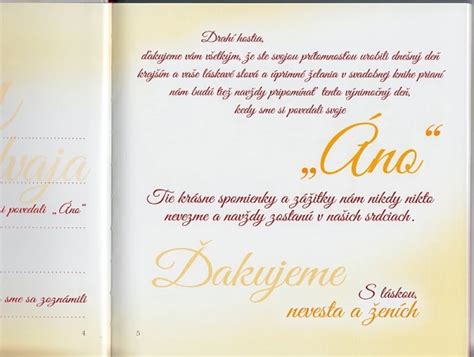 a
dvaja
si povedali „Áno“
sme sa zoznámili
4
Drahí hostia,
ďakujeme vám všetkým, že ste svojou prítomnosťou urobili dnešný deň
krajším a vaše láskavé slová a úprimné želania v svadobnej knihe prianí
nám budú tiež navždy pripomínať tento výnimočný deň,
kedy sme si povedali svoje
„Áno“
Tie krásne spomienky a zážitky nám nikdy nikto
nevezme a navždy zostanú v našich srdciach.
Ďakujeme
S láskou,
nevesta a ženích
5